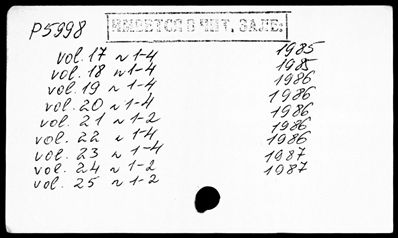 P5998
ИМЕЕТСЯ В ЧИТ. ЗАЛЕ.
vol. 17 N 1-4 1985
vol. 18 N 1-4 1985
vol. 19 N 1-4 1986
vol. 20 N 1-4 1986
vol. 21 N 1-2 1986
vol. 22 N 1-4 1986
vol. 23 N 1-4 1986
vol. 24 N 1-2 1987
vol. 25 N 1-2 1987